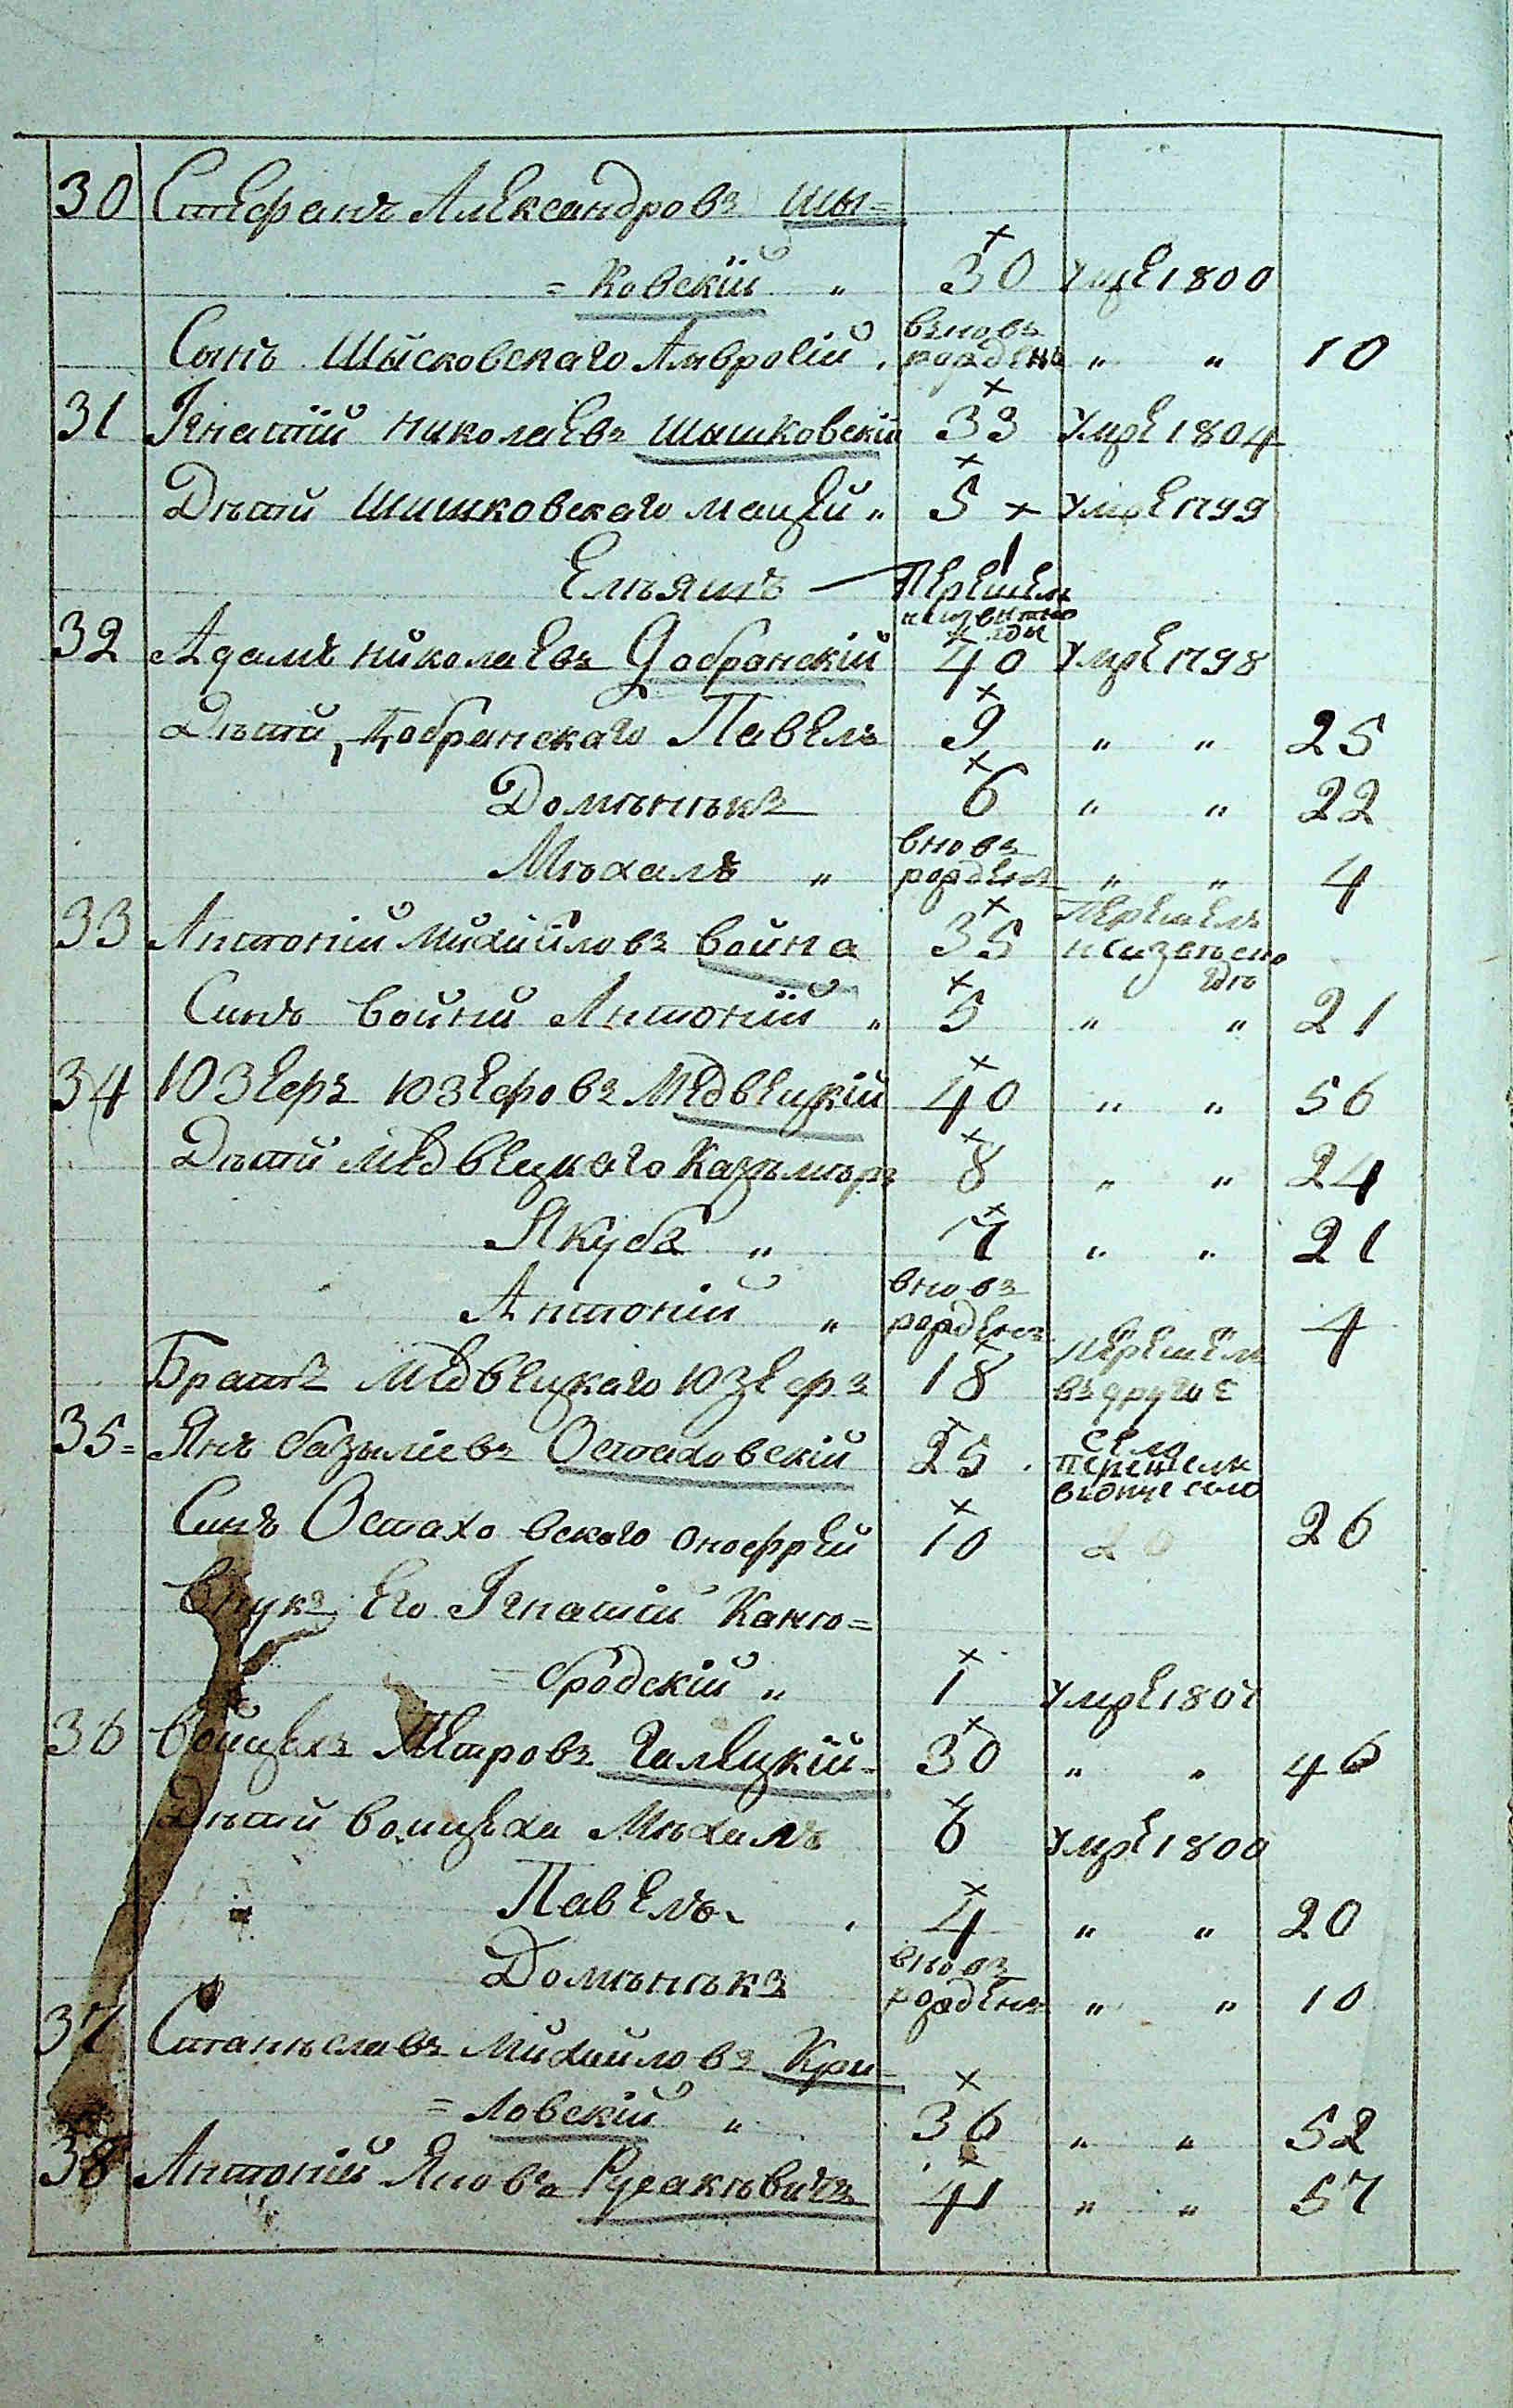 30 Стефанъ Александровъ Шы=
=ковскій „ 30 Умре 1800
Сынъ Шысковскаго Амвросій вновъ рожденъ „ „ 10
31 Ігнатій Николаевъ Шышковскій 33 Умре 1804
Дѣтй Шишковскаго Мацей „ 5 Умре 1799
Елѣяшъ — 1 Перешел
32 Адамъ Николаевъ Добранскій 40 Умре 1798
Дѣтй Добранскаго Павелъ 9 „ „ 25
Домѣнѣкъ 6 „ „ 22
Мѣхалъ „ вновъ рожденъ „ „ 4
33 Антоній Михайловъ Война 35 Перешелъ неизвѣсно гдѣ
Синъ Войнй Антоній „ 5 „ „ 21
34 Юзефъ Юзефовъ Медвецкій 40 „ „ 56
Дѣтй Медвецкаго Казѣмѣръ 8 „ „ 24
Якубъ „ 7 „ „ 21
Антоній „ вновъ рожденъ 4
Братъ Медвецкаго Юзефъ 18 Перешелъ въ другое село
35 = Янъ Базыліевъ Остаховскій 25 перешелъ
Синъ Остаховского Онофрей 10 20 26
Внукъ Его Ігнатій Каню=
=бродскій „ 1 Умре 1801
36 Войцехъ Петровъ Галецкій = 30 „ „ 46
Дѣтй Войцеха Мѣхалъ 6 Умре 1800
Павелъ 4 „ „ 20
Домѣнѣкъ вновъ рожденъ „ „ 10
37 Станѣславъ Михайловъ Кри=
=ловскій „ 36 „ „ 52
38 Антоній Яновъ Русакѣвичъ 41 „ „ 57